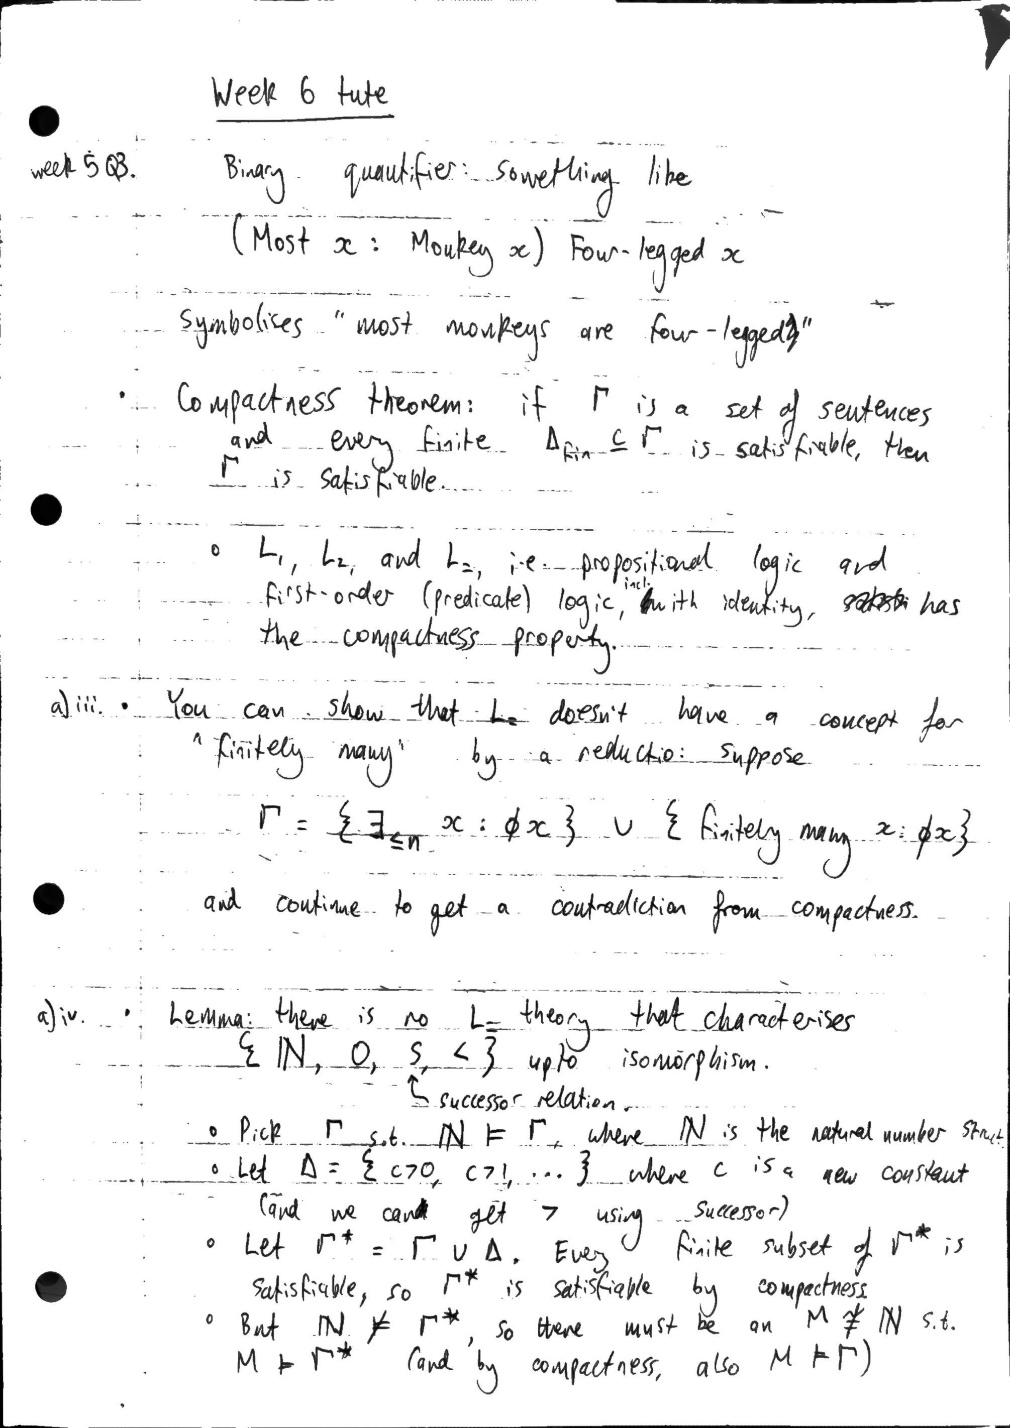 Week 6 tute
week 5 Q3. Binary quantifier: something like
(Most x : Monkey x) Four-legged x
symbolises "most monkeys are four-legged"
• Compactness theorem: if Γ is a set of sentences
and every finite Δfin ⊆ Γ is satisfiable, then
Γ is satisfiable.
∘ L₁, L₂, and L₌, i.e. propositional logic and
first-order (predicate) logic, incl. with identity, has
the compactness property.
a) iii. • You can show that L₌ doesn't have a concept for
"finitely many" by a reductio: suppose
Γ = { ∃≤n x : ϕx } ∪ { finitely many x : ϕx }
and continue to get a contradiction from compactness.
a) iv. • Lemma: there is no L₌ theory that characterises
{ ℕ, 0, S, < } up to isomorphism.
↑ successor relation.
∘ Pick Γ s.t. ℕ ⊨ Γ, where ℕ is the natural number struct
∘ Let Δ = { c>0, c>1, ... } where c is a new constant
(and we can get > using successor)
∘ Let Γ* = Γ ∪ Δ. Every finite subset of Γ* is
satisfiable, so Γ* is satisfiable by compactness
∘ But ℕ ⊭ Γ*, so there must be an M ≇ ℕ s.t.
M ⊨ Γ* (and by compactness, also M ⊨ Γ)